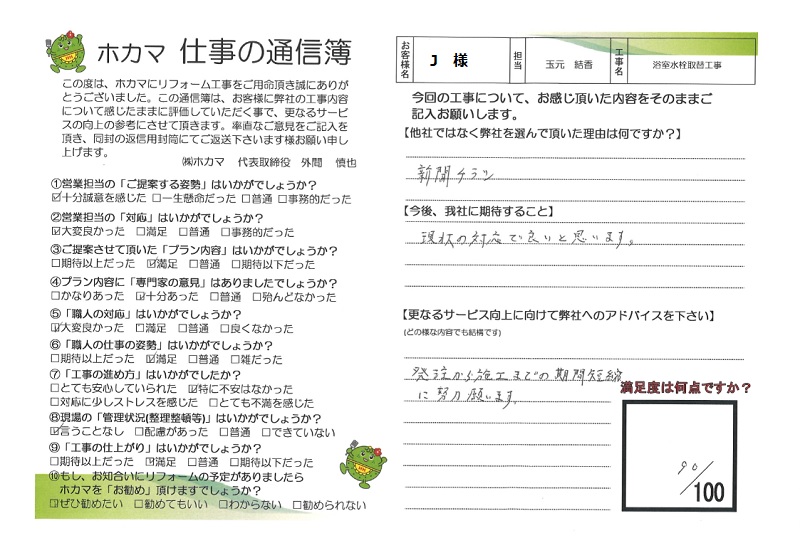 ホカマ 仕事の通信簿
この度は、ホカマにリフォーム工事をご用命頂き誠にありが
とうございました。この通信簿は、お客様に弊社の工事内容
について感じたままに評価していただく事で、更なるサービ
スの向上の参考にさせて頂きます。率直なご意見をご記入を
頂き、同封の返信用封筒にてご返送下さいます様お願い申し
上げます。
㈱ホカマ 代表取締役 外間 慎也
①営業担当の「ご提案する姿勢」はいかがでしょうか?
☑十分誠意を感じた □一生懸命だった □普通 □事務的だった
②営業担当の「対応」はいかがでしょうか?
☑大変良かった □満足 □普通 □事務的だった
③ご提案させて頂いた「プラン内容」はいかがでしょうか?
□期待以上だった ☑満足 □普通 □期待以下だった
④プラン内容に「専門家の意見」はありましたでしょうか?
□かなりあった ☑十分あった □普通 □殆んどなかった
⑤「職人の対応」はいかがでしょうか?
☑大変良かった □満足 □普通 □良くなかった
⑥「職人の仕事の姿勢」はいかがでしょうか?
□期待以上だった ☑満足 □普通 □雑だった
⑦「工事の進め方」はいかがでしたか?
□とても安心していられた ☑特に不安はなかった
□対応に少しストレスを感じた □とても不満を感じた
⑧現場の「管理状況(整理整頓等)」はいかがでしょうか?
☑言うことなし □配慮があった □普通 □できていない
⑨「工事の仕上がり」はいかがでしょうか?
□期待以上だった ☑満足 □普通 □期待以下だった
⑩もし、お知合いにリフォームの予定がありましたら
ホカマを「お勧め」頂けますでしょうか?
☑ぜひ勧めたい □勧めてもいい □わからない □勧められない
お客様名 J 様 担当 玉元 結香 工事名 浴室水栓取替工事
今回の工事について、お感じ頂いた内容をそのままご
記入お願いします。
【他社ではなく弊社を選んで頂いた理由は何ですか?】
新聞チラシ
【今後、我社に期待すること】
現状の対応で良いと思います。
【更なるサービス向上に向けて弊社へのアドバイスを下さい】
(どの様な内容でも結構です)
発注から施工までの期間短縮
に努力願います。
満足度は何点ですか?
90/100